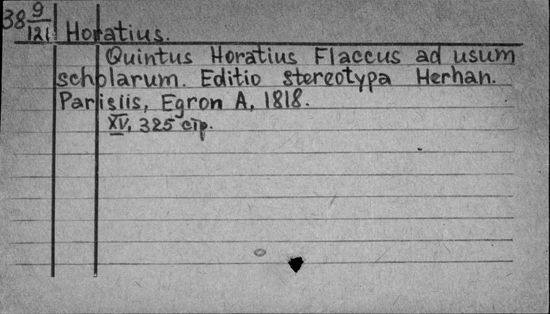 38 9/121 Horatius.
Quintus Horatius Flaccus ad usum
scholarum. Editio stereotypa Herhan.
Parisiis, Egron A, 1818.
XV, 325 стр.